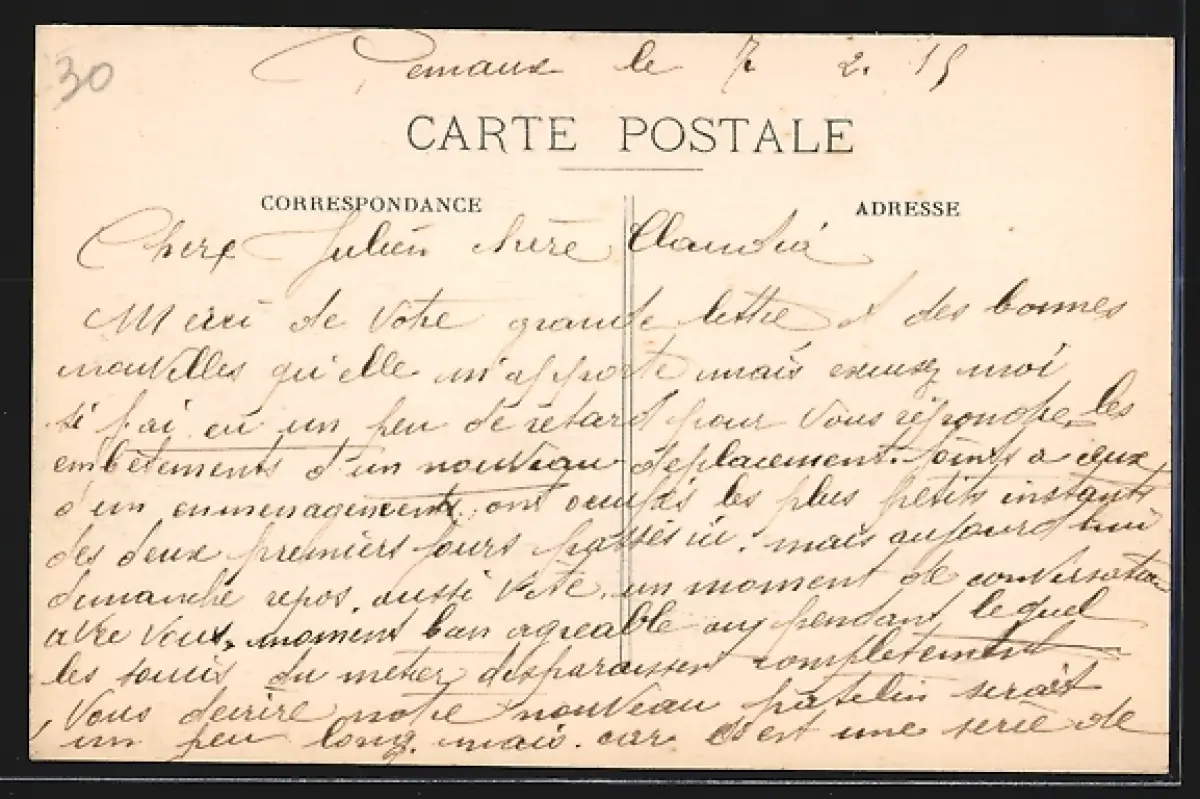 30
le 7 2. 15
CARTE POSTALE
CORRESPONDANCE
ADRESSE
Cher Julien chère Claudia
Merci de votre grande lettre et des bonnes
nouvelles qu'elle m'apporte mais excusez moi
si j'ai eu un peu de retard pour vous répondre. les
embêtements d'un nouveau déplacement. joints a ceux
d'un emmenagement, ont occupés les plus petits instants
des deux premiers jours passés ici. mais aujourd hui
dimanche repos. aussi vite un moment de conversation
avec vous, moment bien agreable pendant lequel
les soucis du métier disparaissent complètement
Vous decrire notre nouveau patelin serait
un peu long. mais. car c'est une serie de